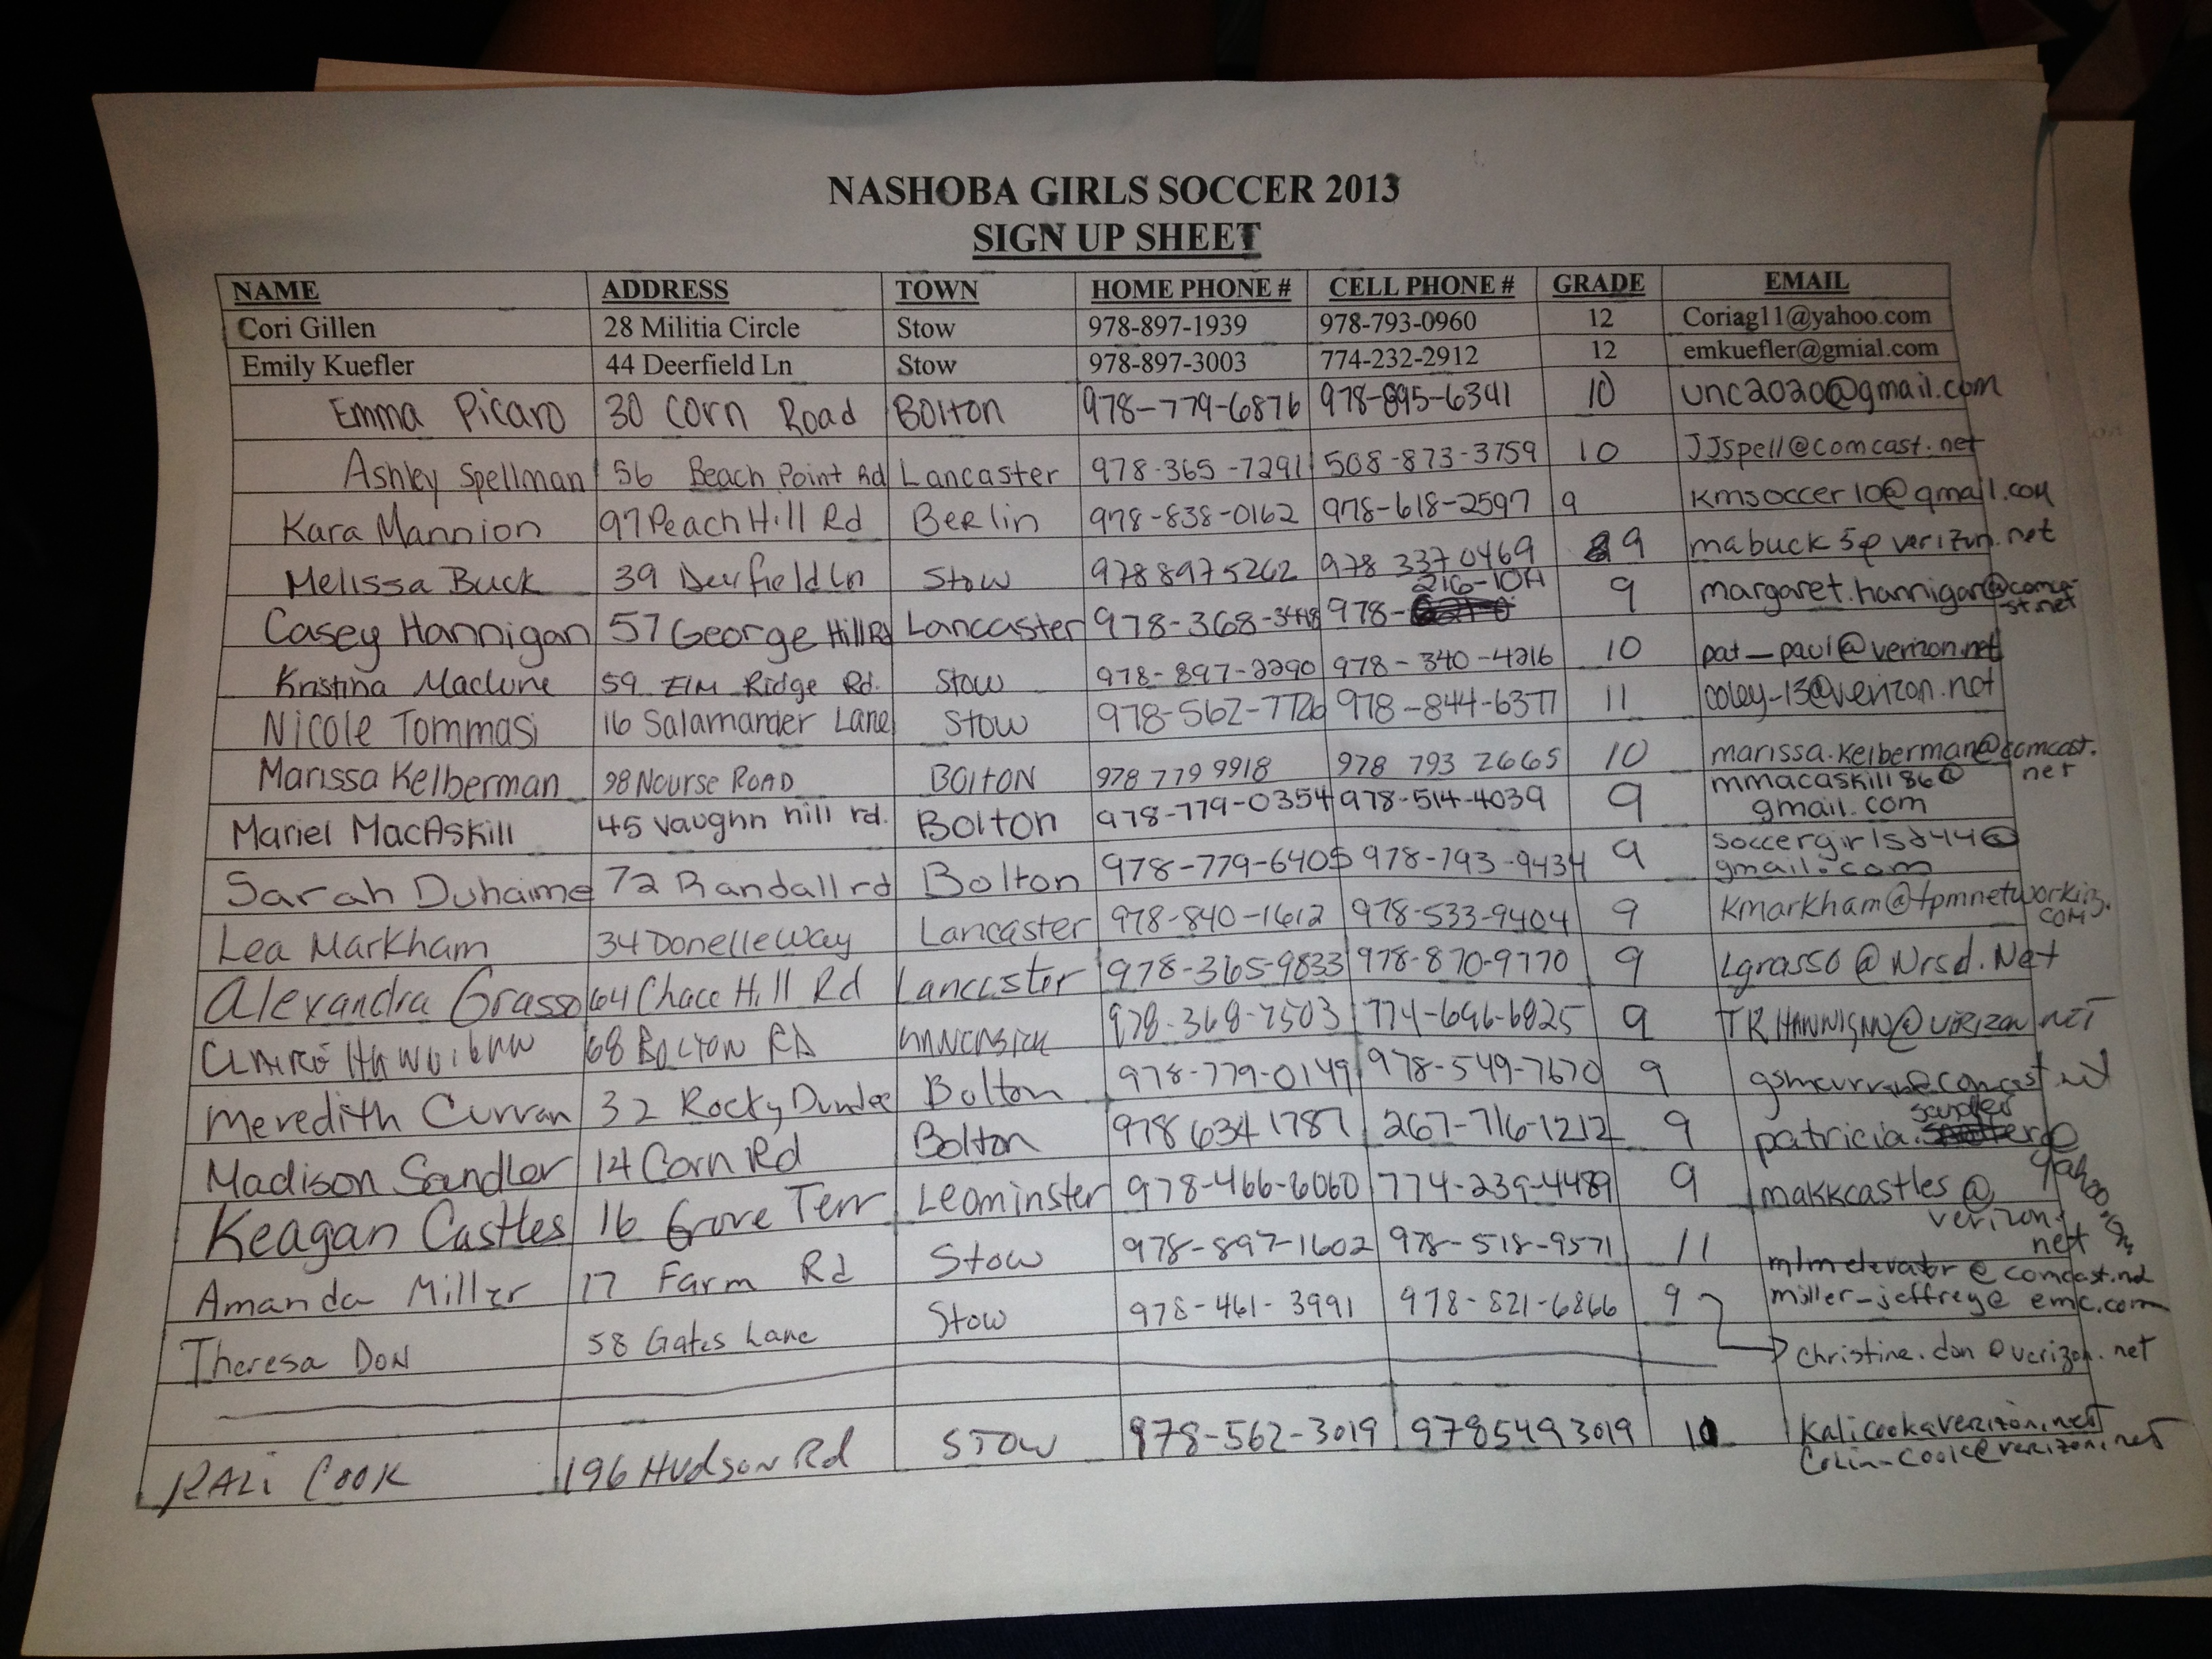 NASHOBA GIRLS SOCCER 2013
SIGN UP SHEET
NAME ADDRESS TOWN HOME PHONE # CELL PHONE # GRADE EMAIL
Cori Gillen 28 Militia Circle Stow 978-897-1939 978-793-0960 12 Coriag11@yahoo.com
Emily Kuefler 44 Deerfield Ln Stow 978-897-3003 774-232-2912 12 emkuefler@gmial.com
Emma Picaro 30 Corn Road Bolton 978-779-6876 978-895-6341 10 unc2020@gmail.com
Ashley Spellman 56 Beach Point Rd Lancaster 978-365-7291 508-873-3759 10 JJspell@comcast.net
Kara Mannion 97 Peach Hill Rd Berlin 978-838-0162 978-618-2597 9 kmsoccer10@gmail.com
Melissa Buck 39 Deerfield Ln Stow 978 897 5262 978 337 0469 9 mabuck5@verizon.net
Casey Hannigan 57 George Hill Rd Lancaster 978-368-3448 978- 9 margaret.hannigan@comca-
st.net
Kristina Maclure 59 Elm Ridge Rd. Stow 978-897-2290 978-340-4216 10 pat_paul@verizon.net
Nicole Tommasi 16 Salamander Lane Stow 978-562-7726 978-844-6377 11 coley-13@verizon.net
Marissa Kelberman 98 Nourse ROAD BOLTON 978 779 9918 978 793 2665 10 marissa.kelberman@comcast.
net
Mariel MacAskill 45 Vaughn hill rd. Bolton 978-779-0354 978-514-4039 9 mmacaskill86@
gmail.com
Sarah Duhaime 72 Randall rd Bolton 978-779-6405 978-793-9434 9 soccergirlsd44@
gmail.com
Lea Markham 34 Donelle Way Lancaster 978-840-1612 978-533-9404 9 kmarkham@tpmnetworking.
com
Alexandra Grasso 64 Chace Hill Rd Lancaster 978-365-9833 978-870-9770 9 Lgrasso@Nrsd.Net
CLAIRE HANNIGAN 68 BOLTON RD LANCASTER 978-368-7503 774-696-6825 9 TRHANNIGAN@VERIZON.NET
Meredith Curran 32 Rocky Dundee Bolton 978-779-0149 978-549-7670 9 gsmcurran@comcast.net
Madison Sandler 14 Corn Rd Bolton 978 634 1787 267-716-1212 9 patricia.sandler@
yahoo.com
Keagan Castles 16 Grove Terr Leominster 978-466-6060 774-239-4489 9 makkcastles@
verizon.
net
Amanda Miller 17 Farm Rd Stow 978-897-1602 978-518-9571 11 mlmelevator@comcast.net
miller_jeffrey@emc.com
Theresa Don 58 Gates Lane Stow 978-461-3991 978-821-6866 9 christine.don@verizon.net
KALI COOK 196 Hudson Rd STOW 978-562-3019 978 549 3019 10 kalicook@verizon.net
Colin-cook@verizon.net